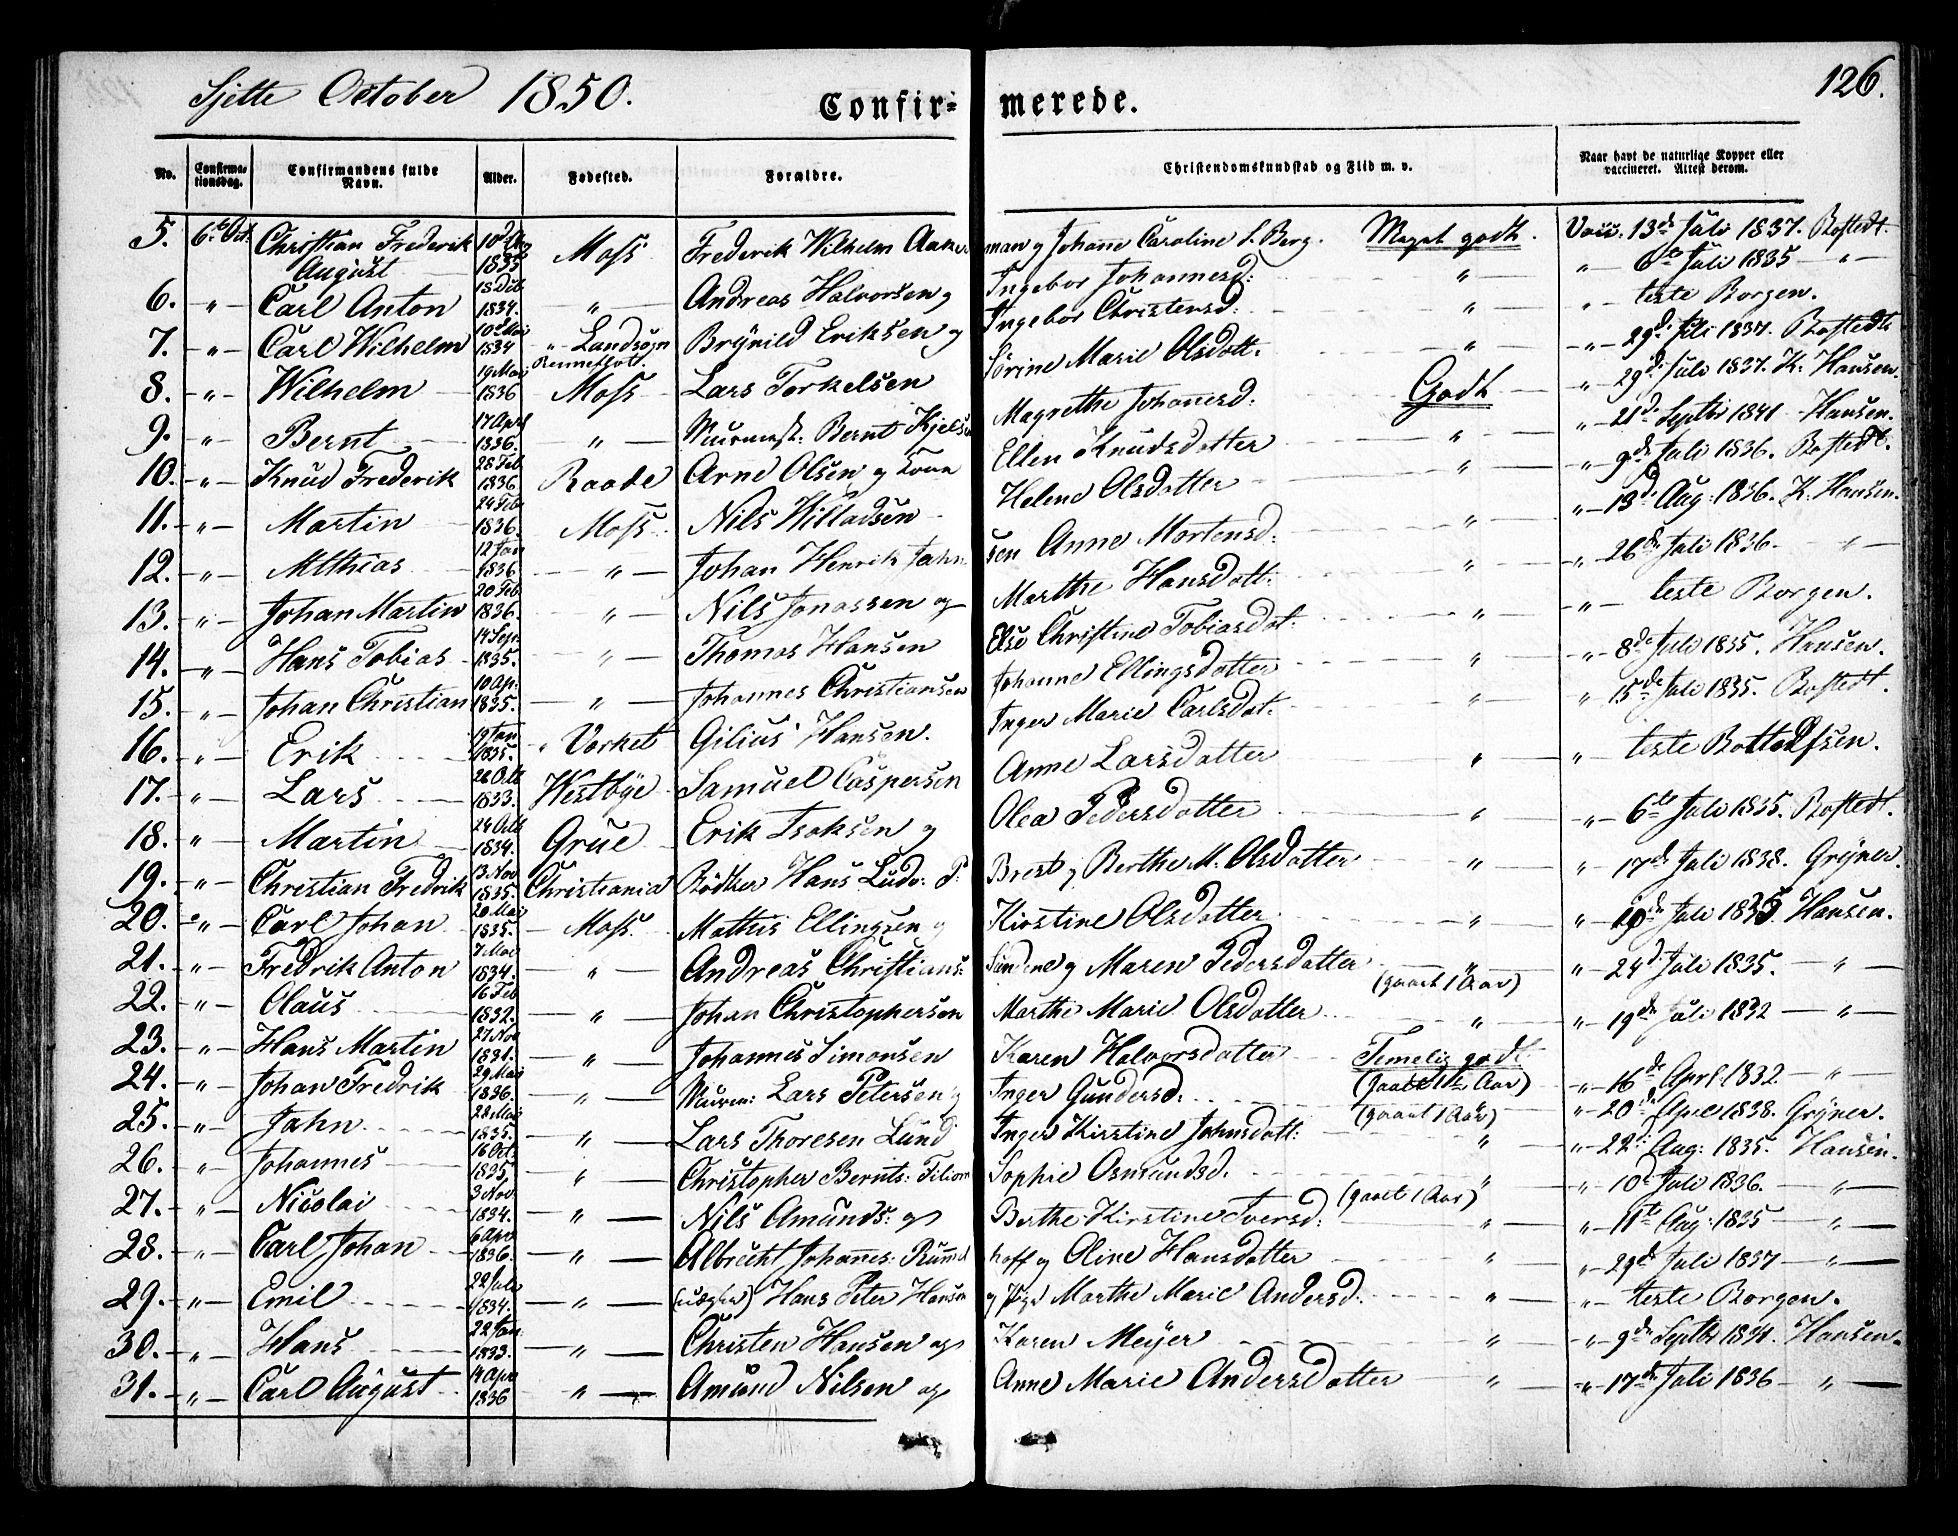 Sjette October 1850.
Confir= merede.
126.
No. Confirma-tionsdag. Confirmandens fulde Navn. Alder. Fødested. Forældre. Christendomskundskab og Flid m. v. Naar havt de naturlige Kopper eller vaccineret. Attest derom.
5. 6te Oct. Christian Frederik August 10de 1835 Moss Frederik Wilhelm Aaker man og Johane Caroline S. Berg. Meget godt. Vacc. 13de Juli 1837. Bostedt.
6. " Carl Anton 18 Deb 1834. " Andreas Halvorsen og Ingebor Johannesd: " " 6te Juli 1835 "
7. " Carl Wilhelm 10de Mai 1834 " Landsogn Brynild Eriksen og Ingebor Christensd: " " teste Borgen.
8. " Wilhelm 19 Mai 1836 Moss Lars Torkelsen Sørine Marie Olsdatt. " " 29de Juli 1837. Bostedt
9. " Bernt 17 Apr 1836. " Muurmest: Bernt Kjels Magrethe Johanesd: Godt " 29de Juli 1837. K. Hansen.
10. " Knud Frederik 28 Feb 1836 Raade Arne Olsen og Kone Ellen Knudsdatter " " 21de Septbr 1841 Hansen.
11. " Martin 24 Feb 1836. Moss Nils Willadsen Helene Olsdatter " " 9de Juli 1836. Bostedt.
12. " Mthias 12 Jan 1836 " Johan Henrik Jahn sen Anne Mortensd: " " 13d Aug: 1836. K. Hansen.
13. " Johan Martin 20 Feb. 1836. " Nils Jonassen og Marthe Hansdatt: " " 26de Juli 1836. "
14. " Hans Tobias 14 Sepr. 1835. " Thomas Hansen Else Christine Tobiasdat. " " teste Borgen.
15. " Johan Christian 10 Ap: 1835. " Johannes Christiansen Johanne Ellingsdatter " " 8de Juli 1835. Hansen.
16. " Erik 19 Jan 1835. " Vorket Gilius Hansen. Inger Marie Carlsdat. " " 15de Juli 1835. Bostedt.
17. " Lars 26 Octb 1833. Westbye Samuel Caspersen Anne Larsdatter " " teste Bottolfsen.
18. " Martin 24 Octb 1834. Grue Erik Isaksen og Olea Pedersdatter " " 6te Juli 1835. Bostedt.
19. " Christian Fredrik 3 Nov 1835. Christiania Bødker Hans Ludv: P: Brest og Berthe M. Olsdatter " " 17de Juli 1838. Gryner
20. " Carl Johan 20 Mai 1835. Moss. Mathis Ellingsen og Kirstine Olsdatter " " 10de Juli 1835. Hansen.
21. " Fredrik Anton 7 Mai 1834. " Andreas Christians: Sundene og Maren Pedersdatter (gaaet 1 Aar) " 24d Juli 1835. "
22. " Olaus 16 Feb 1832. " Johan Christophersen Marthe Marie Olsdatter " " 19de Juli 1832 "
23. " Hans Martin 27 Nov 1831. " Johannes Simonsen Karen Halvorsdatter Temelig godt. (gaaet 1½ Aar) " 16de Aprl 1832 "
24. " Johan Fredrik 29 Mai 1836. " Muurm: Lars Petersen og Inger Gundersd: (gaaet 1 Aar) " 20de Aprl 1838. Gryner.
25. " Jahn 28 Mai 1835. " Lars Thoresen Lund Inger Kirstine Johnsdatt: " " 22de Aug: 1835. Hansen.
26. " Johannes 16 Oct. 1835. " Christopher Bernts: Sophie Osmundsd. (gaaet 1 Aar) " " 10d Juli 1836. "
27. " Nicolai 3 Nov. 1834. " Nils Amunds: og Berthe Kirstine Iversd: " " 11te Aug: 1835 "
28. " Carl Johan 6 Apr 1836. " Albrecht Johanes: Rumel hoff og Oline Hansdatter " " 29de Juli 1837 "
29. " Emil 29 Juli 1834. " (uægte) Hans Peter Hansen og Pige Marthe Marie Andersd: " " teste Borgen.
30. " Hans 22 Jan. 1833. " Christen Hansen og Karen Meyer " " 9de Septbr 1834. Hansen
31. " Carl August 14 Apr 1836 " Amund Nilsen og Anne Marie Andersdatter " " 17de Juli 1836 "